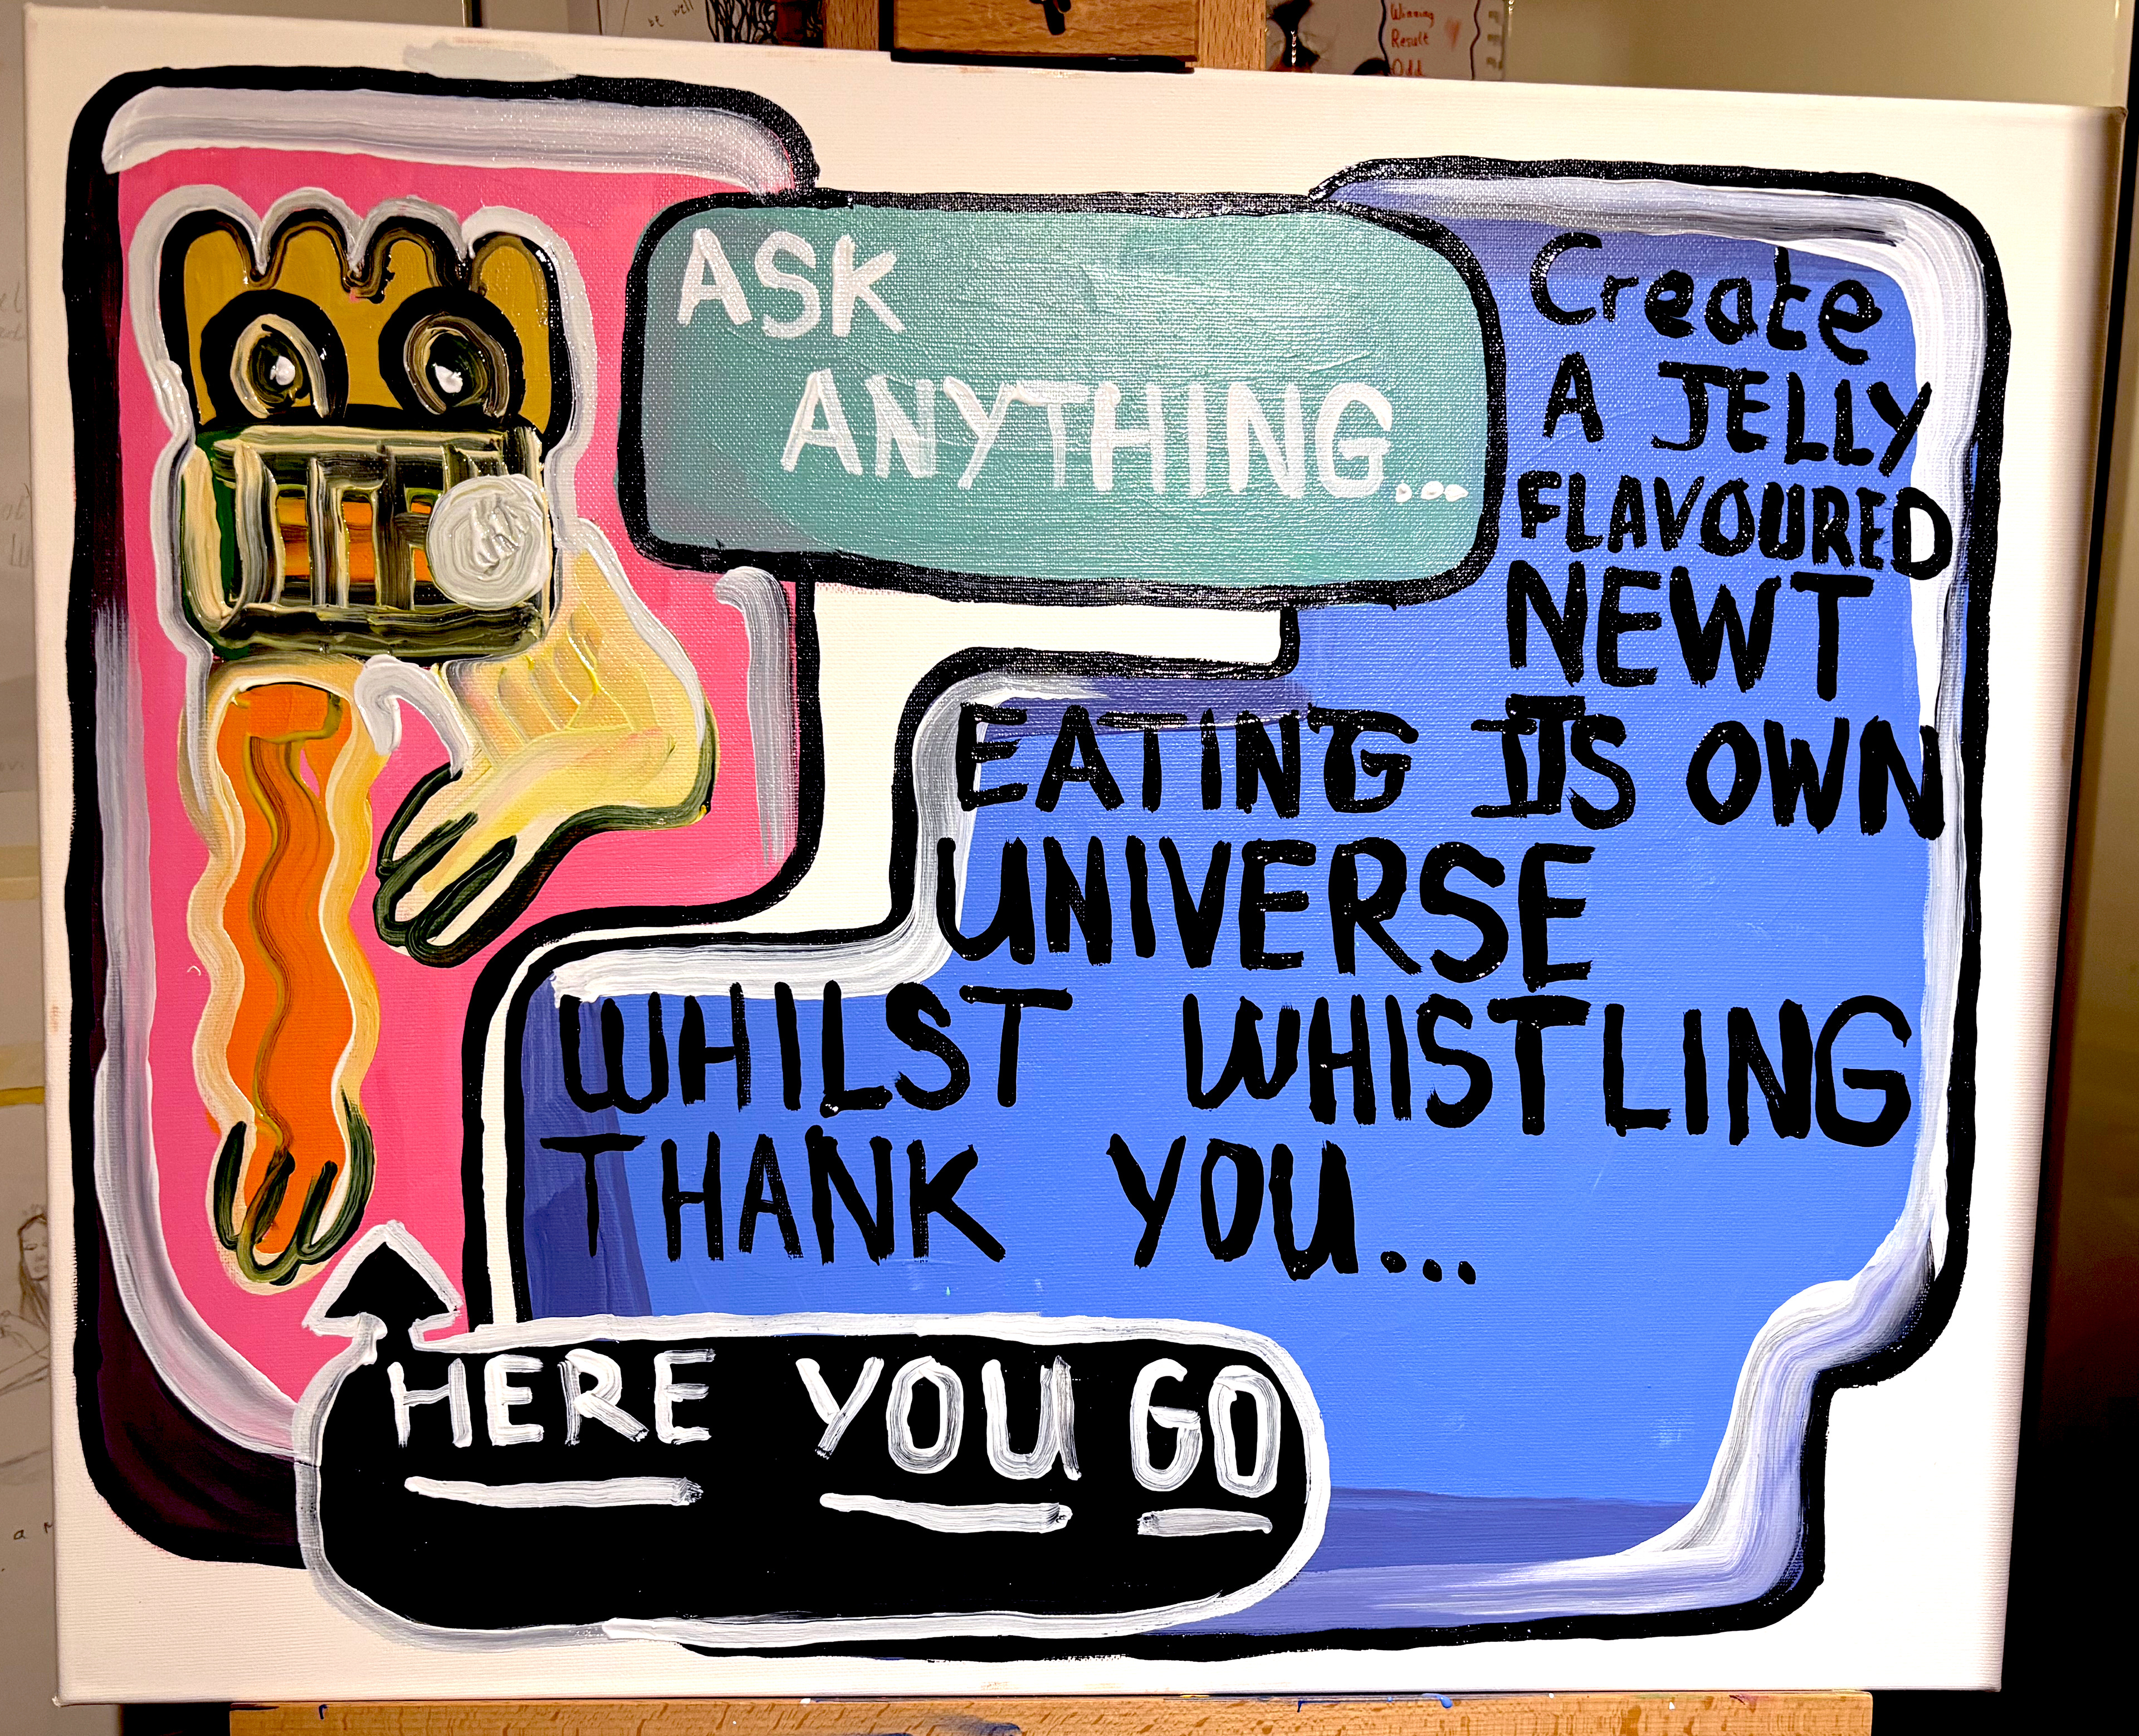 be well
Winning
Result
Odd
ASK
ANYTHING...
Create
A JELLY
FLAVOURED
NEWT
EATING ITS OWN
UNIVERSE
WHILST WHISTLING
THANK YOU...
HERE YOU GO